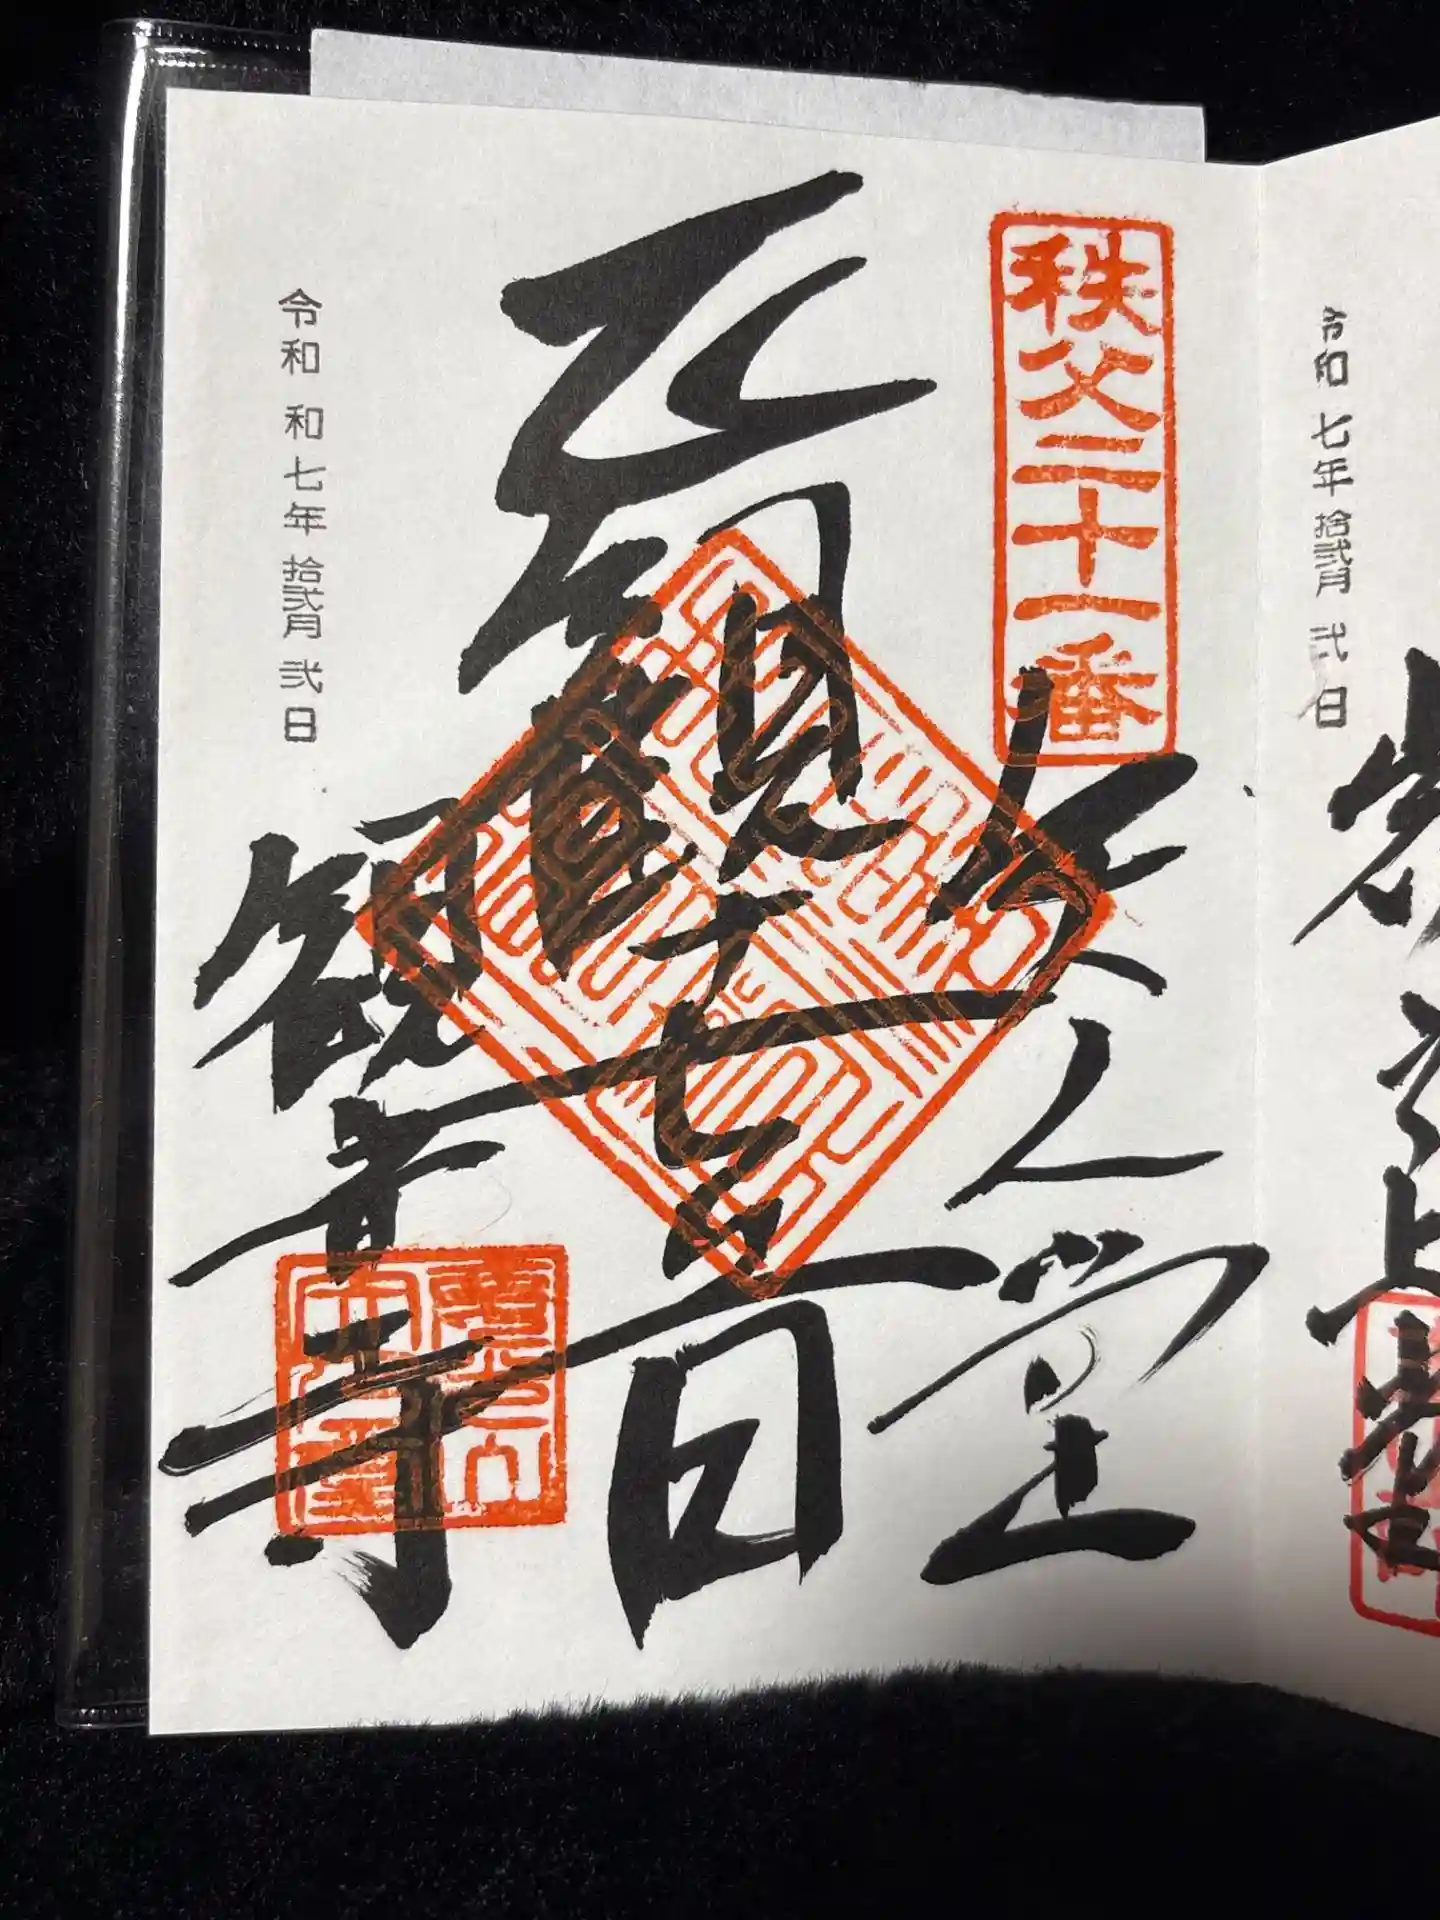 岩之上堂
令和七年拾弐月弐日
秩父二十一番
矢之堂
聖観世音
観音寺
令和和七年拾弐月弐日